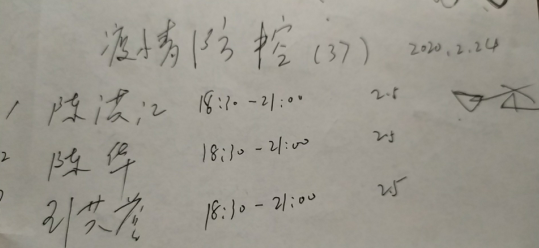 疫情防控（37） 2020.2.24
1 陈洪江 18:30-21:00 2.5
2 陈华 18:30-21:00 2.5
18:30-21:00 2.5